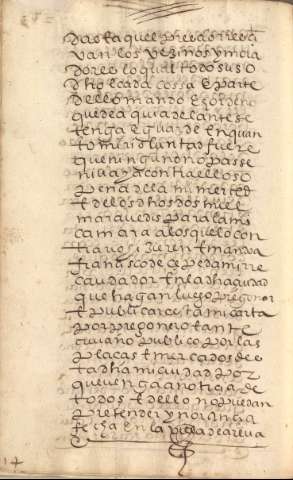 das ta quel pre
van los vezinos
dores lo qual todo suso
dho e cada cossa e parte
dello mando e
que de a qui adelante se
tenga e guarde en quan
to mi voluntad fuere
que ningun dno passe
ni vaya contra ello so
pena de la mi merced
e de los dhos dos mill
maravedis para la mi
camara a los que lo con
trario hizieren e manda
francisco de cespedes mi re
caudador en la dha ciudad
que hagan luego pregonar
e publicar esta mi carta
por pregonero e ante
escrivano publico por las
placas e mercados de e
ta dha mi ciudad por
que venga a noticia de
todos e dello no puedan
pretender ynorancia
fecha en la villa de arevalo